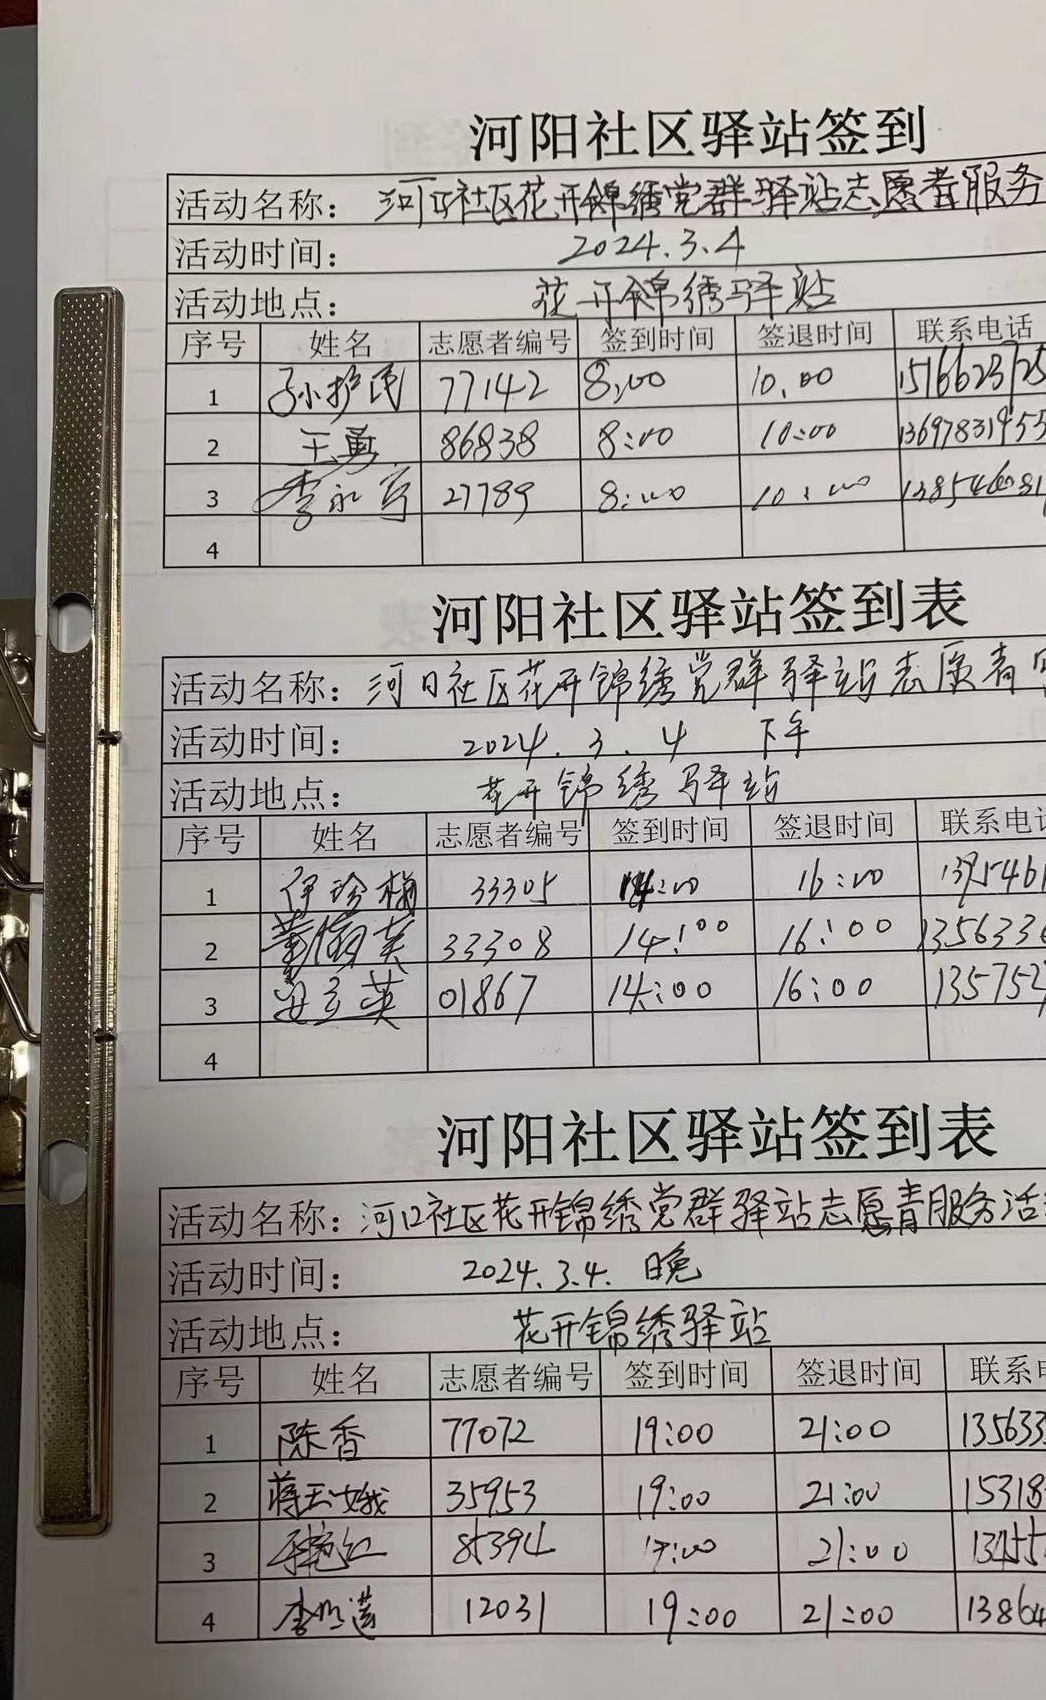 河阳社区驿站签到
活动名称：河口社区花开锦绣党群驿站志愿者服务
活动时间：2024.3.4
活动地点：花开锦绣驿站
序号 姓名 志愿者编号 签到时间 签退时间 联系电话
1 孙护民 77142 8:00 10.00
2 王勇 86838 8:00 10:00
3 李永亭 27789 8:00 10:00
4
河阳社区驿站签到表
活动名称：河口社区花开锦绣党群驿站志愿者
活动时间：2024.3.4 下午
活动地点：花开锦绣驿站
序号 姓名 志愿者编号 签到时间 签退时间 联系电话
1 伊珍梅 33305 14:00 16:00 1395461
2 33308 14:00 16:00 1356336
3 01867 14:00 16:00 135752
4
河阳社区驿站签到表
活动名称：河口社区花开锦绣党群驿站志愿者服务活
活动时间：2024.3.4. 晚
活动地点：花开锦绣驿站
序号 姓名 志愿者编号 签到时间 签退时间 联系
1 陈香 77072 19:00 21:00 135633
2 蒋玉娥 35953 19:00 21:00 15318
3 85394 19:00 21:00
4 李明莲 12031 19:00 21:00 13864